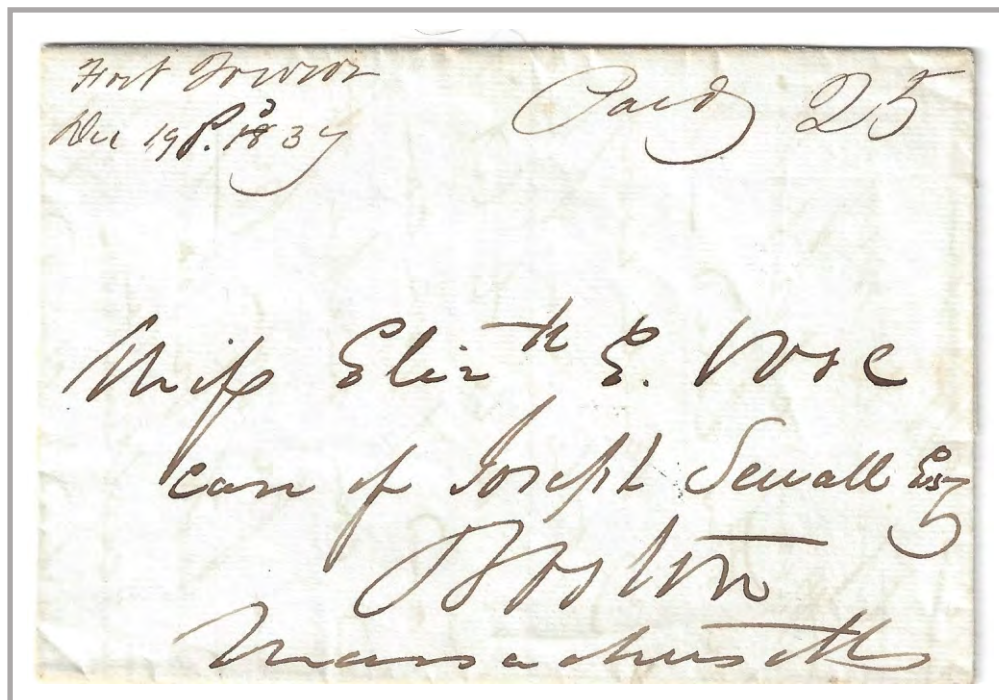 Fort Towson
Paid 25
Dec 19 1837
Miſs Elizth E. Vose
care of Joseph Sewall Esq
Boston
Massachusetts